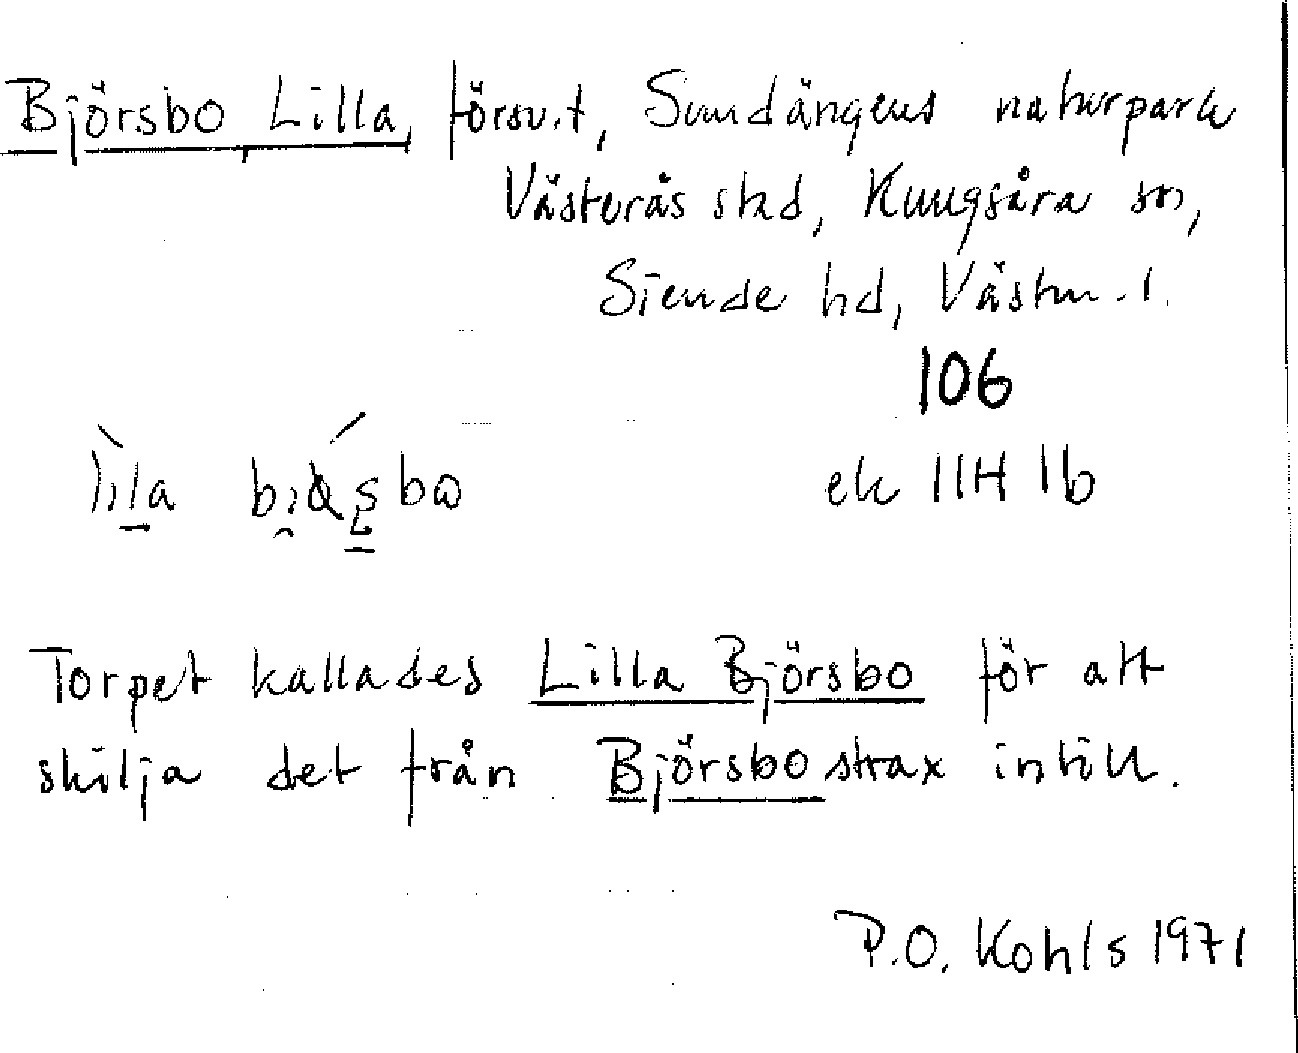 Björsbo, Lilla, försv.t, Sundängens naturpark
Västerås stad, Kungsåra sn,
Siende hd, Västm. l.
106
ek 11H 1b
Torpet kallades Lilla Björsbo för att
skilja det från Björsbo strax intill.
P.O. Kohls 1971